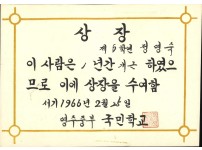 상장
제6학년 정영숙
이 사람은 1년간 개근 하였으
므로 이에 상장을 수여함
서기 1966년 2월 25일
영수중부 국민학교